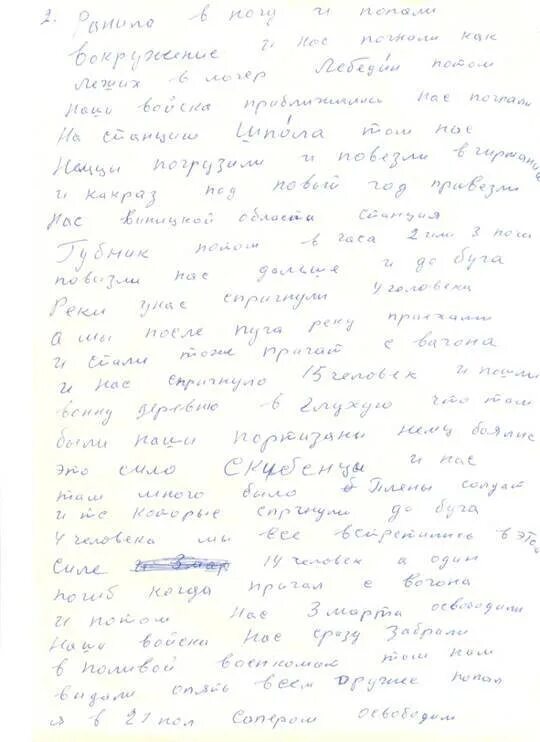 2. Ранила в ногу и попали
вокружение и нас погнали как
леших в логер Лебеди́н потом
Наши войска приближались Нас погнали
На станцию Шпо́ла там нас
Немцы погрузили и повезли в гирманию
и какраз под новый год привезли
Нас виницкой области станция
Губник потом в часа 2 или 3 ночи
повезли нас дальше и до буга
Реки унас спригнули 4 человека
А мы после буга реку приехали
и стали тоже пригат с вагона
и нас спригнуло 15 человек и пошли
водну деревню в глухую что там
были наши портизани немц боялис
это сило Скибенцы и нас
там много было Плены солдат
и те которые спргнули до буга
4 человека мы все встретились в этом
силе 14 человек а один
погиб когда пригал с вагона
и потом Нас 3 марта освободили
Наши войска Нас сразу Забрали
в Поливой военкомат там нам
видали опять всем оружие попал
я в 21 пол Сапером освободим